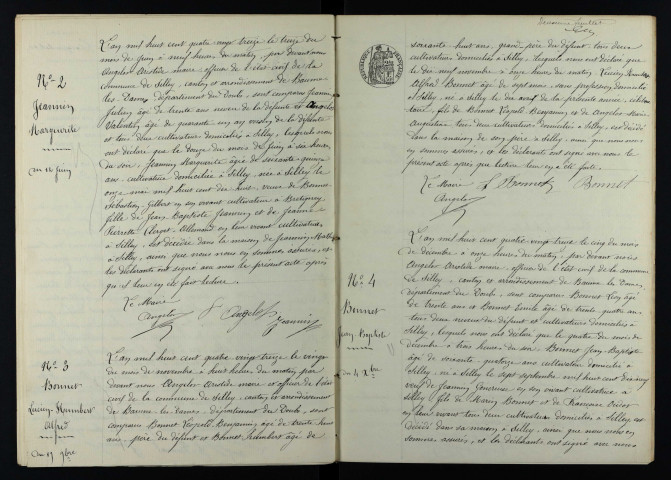 N° 2
Jeannin
Marguerite
du 12 juin
L'an mil huit cent quatre vingt treize le treize du
mois de juin à neuf heures du matin, par devant nous
Angelot Aristide maire, officier de l'état civil de la
commune de Silley, canton et arrondissement de Baume
les Dames, département du Doubs, sont comparus Jeannin
Justin âgé de trente ans neveu de la défunte et Angelot
Valentin âgé de quarante un ans voisin de la défunte
et tous deux cultivateurs domiciliés à Silley, lesquels nous
ont déclaré que le douze du mois de juin à six heures
du soir, Jeannin Marguerite âgée de soixante quinze
ans cultivatrice domiciliée à Silley, née à Silley le
onze mai mil huit cent dix huit, veuve de Bonnet
Sébastien Gilbert en son vivant cultivateur à
fille de Jean Baptiste Jeannin et de Jeanne
Pierrette en leur vivant cultivateurs
à Silley, est décédée dans la maison de Jeannin
à Silley, ainsi que nous nous en sommes assurés, et
les déclarants ont signé avec nous le présent acte après
qu'il leur en a été fait lecture.
Le Maire
Angelot
Angelot
Jeannin
N° 3
Bonnet
Alfred
du 19 9bre
L'an mil huit cent quatre vingt treize le vingt
du mois de novembre à huit heures du matin, par
devant nous Angelot Aristide maire et officier de l'état
civil de la commune de Silley, canton et arrondissement
de Baume les Dames, département du Doubs, sont
comparus Bonnet Léopold Benjamin, âgé de trente huit
ans, père du défunt et Bonnet Humbert âgé de
soixante huit ans, grand père du défunt tous deux
cultivateurs domiciliés à Silley, lesquels nous ont déclaré que
le dix neuf novembre à onze heures du matin,
Alfred Bonnet âgé de sept mois, sans profession domicilié
à Silley, né à Silley le dix avril de la présente année, célibataire,
fils de Bonnet Léopold Benjamin et de Angelot Marie
tous deux cultivateurs domiciliés à Silley, est décédé
dans la maison de son père à Silley, ainsi que nous nous
en sommes assurés, et les déclarants ont signé avec nous le
présent acte après que lecture leur en a été faite.
Le Maire
Angelot
Bonnet
Bonnet
N° 4
Bonnet
Jean Baptiste
du 4 Xbre
L'an mil huit cent quatre vingt treize le cinq du mois
de décembre à onze heures du matin, par devant nous
Angelot Aristide maire, officier de l'état civil de la commune
de Silley, canton et arrondissement de Baume les Dames,
département du Doubs, sont comparus Bonnet Léon âgé
de trente ans et Bonnet Emile âgé de trente quatre ans
tous deux neveux du défunt et cultivateurs domiciliés à
Silley, lesquels nous ont déclaré que le quatre du mois de
décembre à trois heures du soir Bonnet Jean Baptiste
âgé de soixante quatorze ans cultivateur domicilié à
Silley, né à Silley le sept septembre mil huit cent dix neuf
veuf de Jeannin en son vivant cultivatrice à
Silley, fils de Bonnet et de Françoise
en leur vivant tous deux cultivateurs domiciliés à Silley est
décédé dans sa maison à Silley, ainsi que nous nous en
sommes assurés, et les déclarants ont signé avec nous